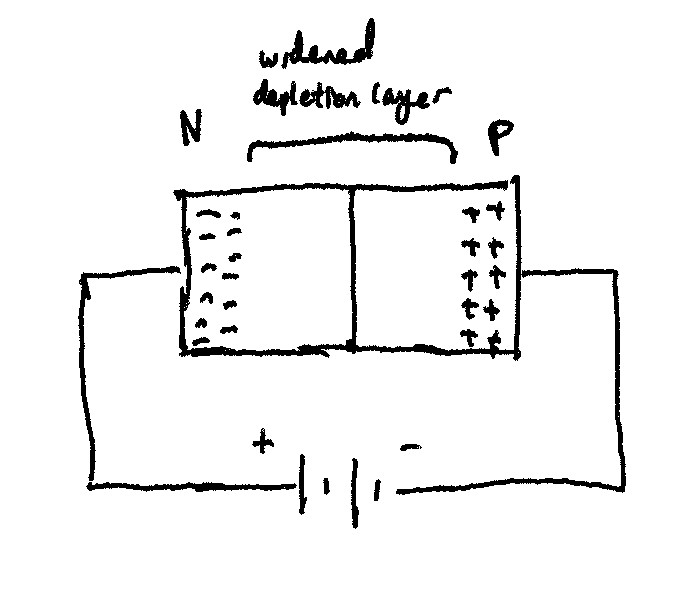 widened
depletion layer
N
P
- - + +
- - + +
- - + +
- - + +
- - + +
-
+ -